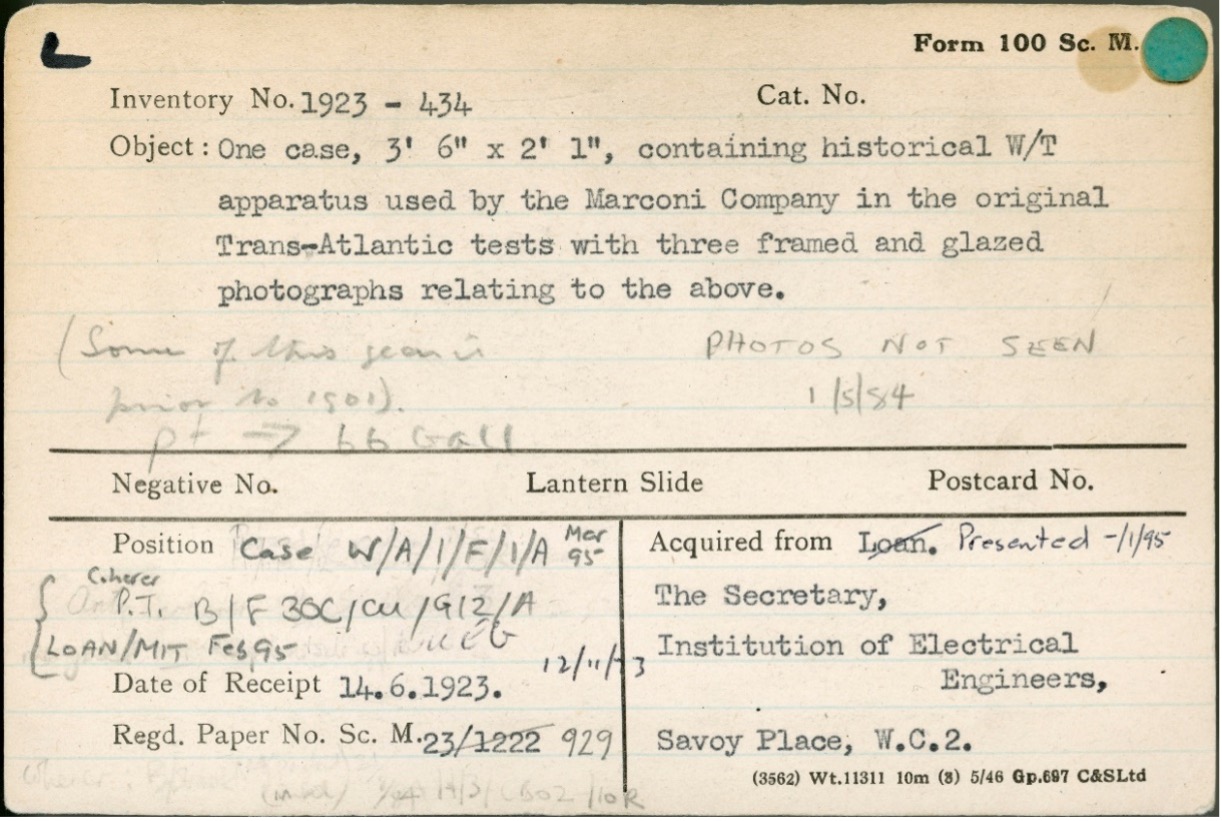 Form 100 Sc. M.
Inventory No. 1923 - 434 Cat. No.
Object: One case, 3' 6" x 2' 1", containing historical W/T
apparatus used by the Marconi Company in the original
Trans-Atlantic tests with three framed and glazed
photographs relating to the above.
(Some of this gear is PHOTOS NOT SEEN
prior to 1901). 1/5/84
pt → 66 Gall
Negative No. Lantern Slide Postcard No.
Position Case W/A/1/F/1/A Mar 95
Coherer
P.T. B/F 30C/CU/G12/A
LOAN/MIT Feb 95
12/11/
Date of Receipt 14.6.1923.
Regd. Paper No. Sc. M. 23/1222 929
Acquired from Loan. Presented -/1/95
The Secretary,
Institution of Electrical
Engineers,
Savoy Place, W.C.2.
(3562) Wt.11311 10m (3) 5/46 Gp.697 C&SLtd
Coherer: